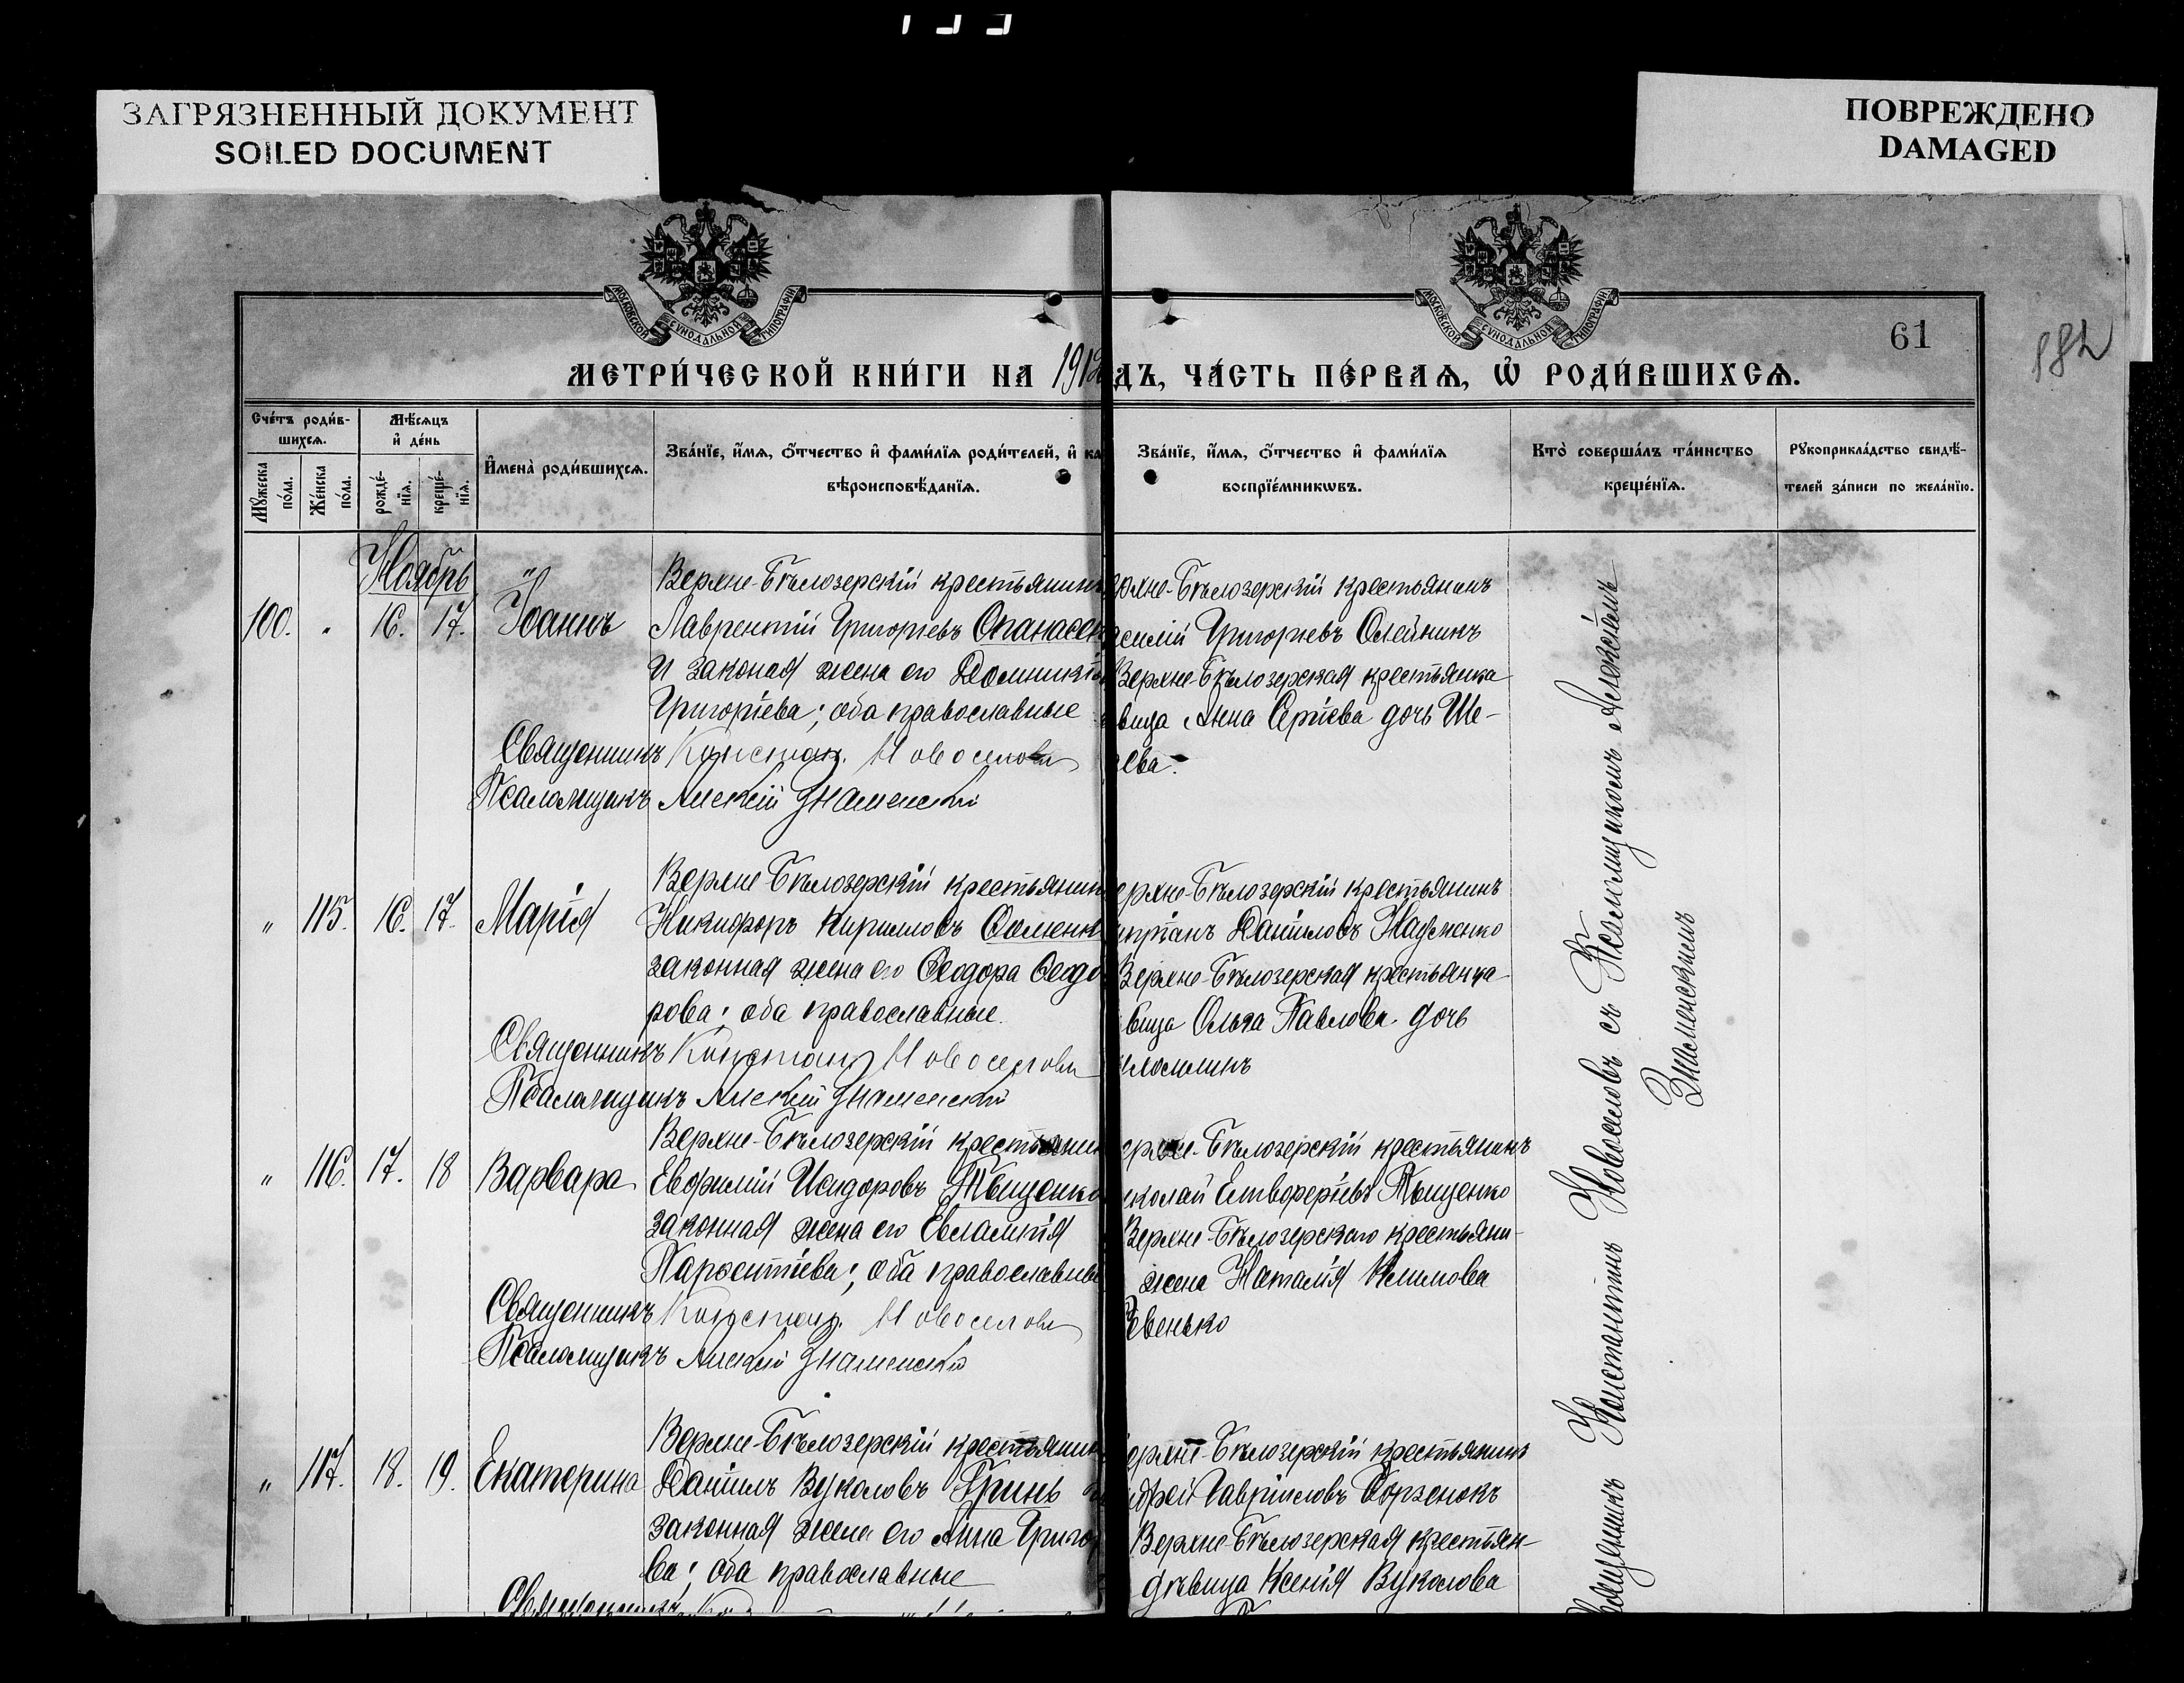 ЗАГРЯЗНЕННЫЙ ДОКУМЕНТ
SOILED DOCUMENT
ПОВРЕЖДЕНО
DAMAGED
МОСКОВСКОЙ СѴНОДАЛЬНОЙ ТИПОГРАФІИ
МОСКОВСКОЙ СѴНОДАЛЬНОЙ ТИПОГРАФІИ
61
182
МЕТРИ́ЧЕСКОЙ КНИ́ГИ НА 1912
ДЪ, ЧА́СТЬ ПЕ́РВАѦ, Ѡ҆ РОДИ́ВШИХСѦ.
Сче́тъ роди́в-
шихсѧ.
Мꙋ́жеска по́ла.
Же́нска по́ла.
Мѣ́сѧцъ
и҆ де́нь
рожде́-нїѧ.
креще́-нїѧ.
И҆мена̀ роди́вшихсѧ.
Зва́нїе, и҆́мѧ, ѻ҆́тчество и҆ фами́лїѧ роди́телей, и҆ ка
вѣроисповѣ́данїѧ.
Зва́нїе, и҆́мѧ, ѻ҆́тчество и҆ фами́лїѧ
воспрїе́мникѡвъ.
Кто̀ соверша́лъ та́инство
креще́нїѧ.
Рꙋкоприкла́дство свидѣ́-
телей за́писи по жела́нїю.
Ноябрь
100. " 16. 17. Іоаннъ
Верхне-Бѣлозерскій крестьянинъ
Лаврентій Григоріевъ Опанасен
и законая жена его Домникія
Григоріева; оба православные
Священникъ Констан. Новоселовъ
Псаломщикъ Алексій Знаменскій
ерхне-Бѣлозерскій крестьянинъ
силій Григорьевъ Олейникъ
Верхне-Бѣлозерская крестьянка
вица Анна Сергіева дочь Ше-
ева.
" 115. 16. 17. Марія
Верхне-Бѣлозерскій крестьянин
Никифоръ Кирилловъ Ѳоменк
законная жена его Ѳеодора Ѳеодо
рова; оба православные.
Священникъ Констант Новоселовъ
Псаломщикъ Алексій Знаменскій
ерхне-Бѣлозерскій крестьянинъ
ипріанъ Даніиловъ Науменко
Верхне-Бѣлозерская крестьянка
вица Ольга Павлова дочь
" 116. 17. 18 Варвара
Верхне-Бѣлозерскій крестьянин
Евфимій Исидоровъ Тыщенко
законная жена его Евлампія
Пароентіева; оба православны
Священникъ Констан. Новоселовъ
Псаломщикъ Алексій Знаменскій
ерхне-Бѣлозерскій крестьянинъ
иколай Елевферіевъ Тыщенко
Верхне-Бѣлозерскаго крестьяни-
жена Наталія Климова
евенько
" 117. 18. 19. Екатерина
Верхне-Бѣлозерскій крестьянин
Даніилъ Вуколовъ Гринь
законная жена его Анна Григор
ва; оба православные
Священникъ
ерхне-Бѣлозерскій крестьянинъ
ндрей Гавріиловъ Борзенокъ
Верхне-Бѣлозерская крестьян-
дѣвица Ксенія Вуколова
Священникъ Константинъ Новоселовъ съ Псаломщикомъ Алексіемъ
Знаменскимъ